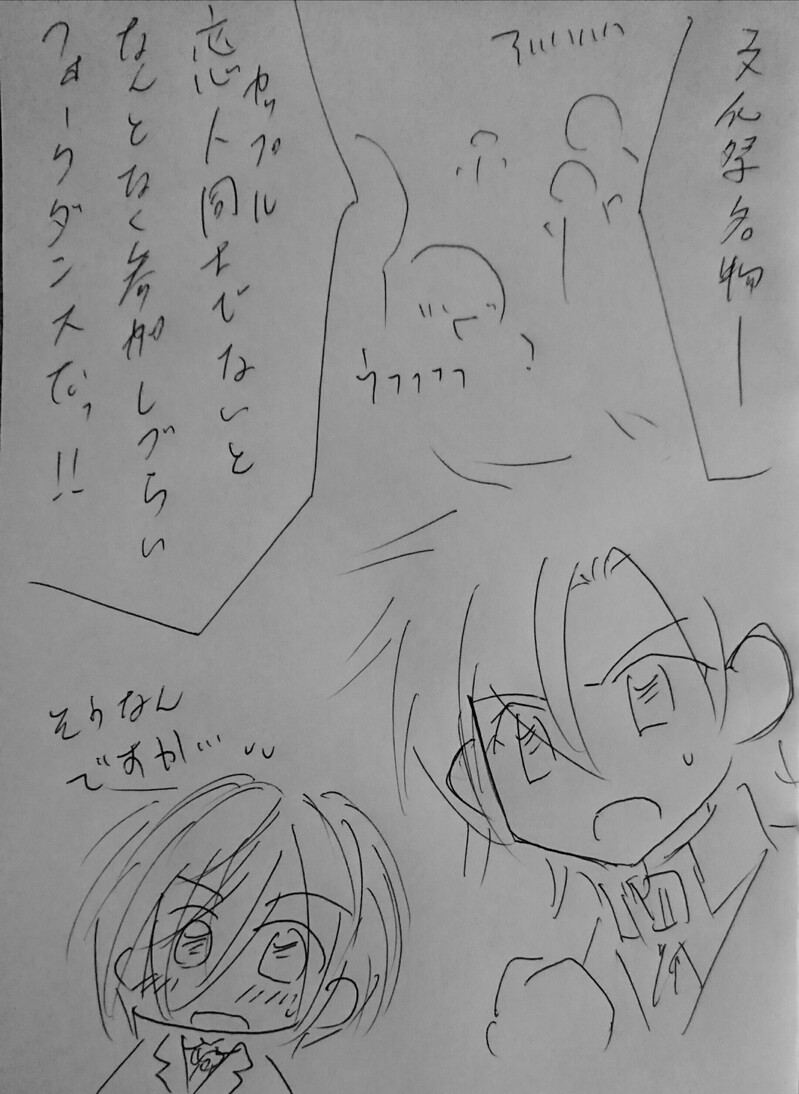 文化祭名物ー
アハハハハハ
ウフフフフ
カップル
恋人同士でないと
なんとなく参加しづらい
フォークダンスだっ!!
そうなん
ですか…